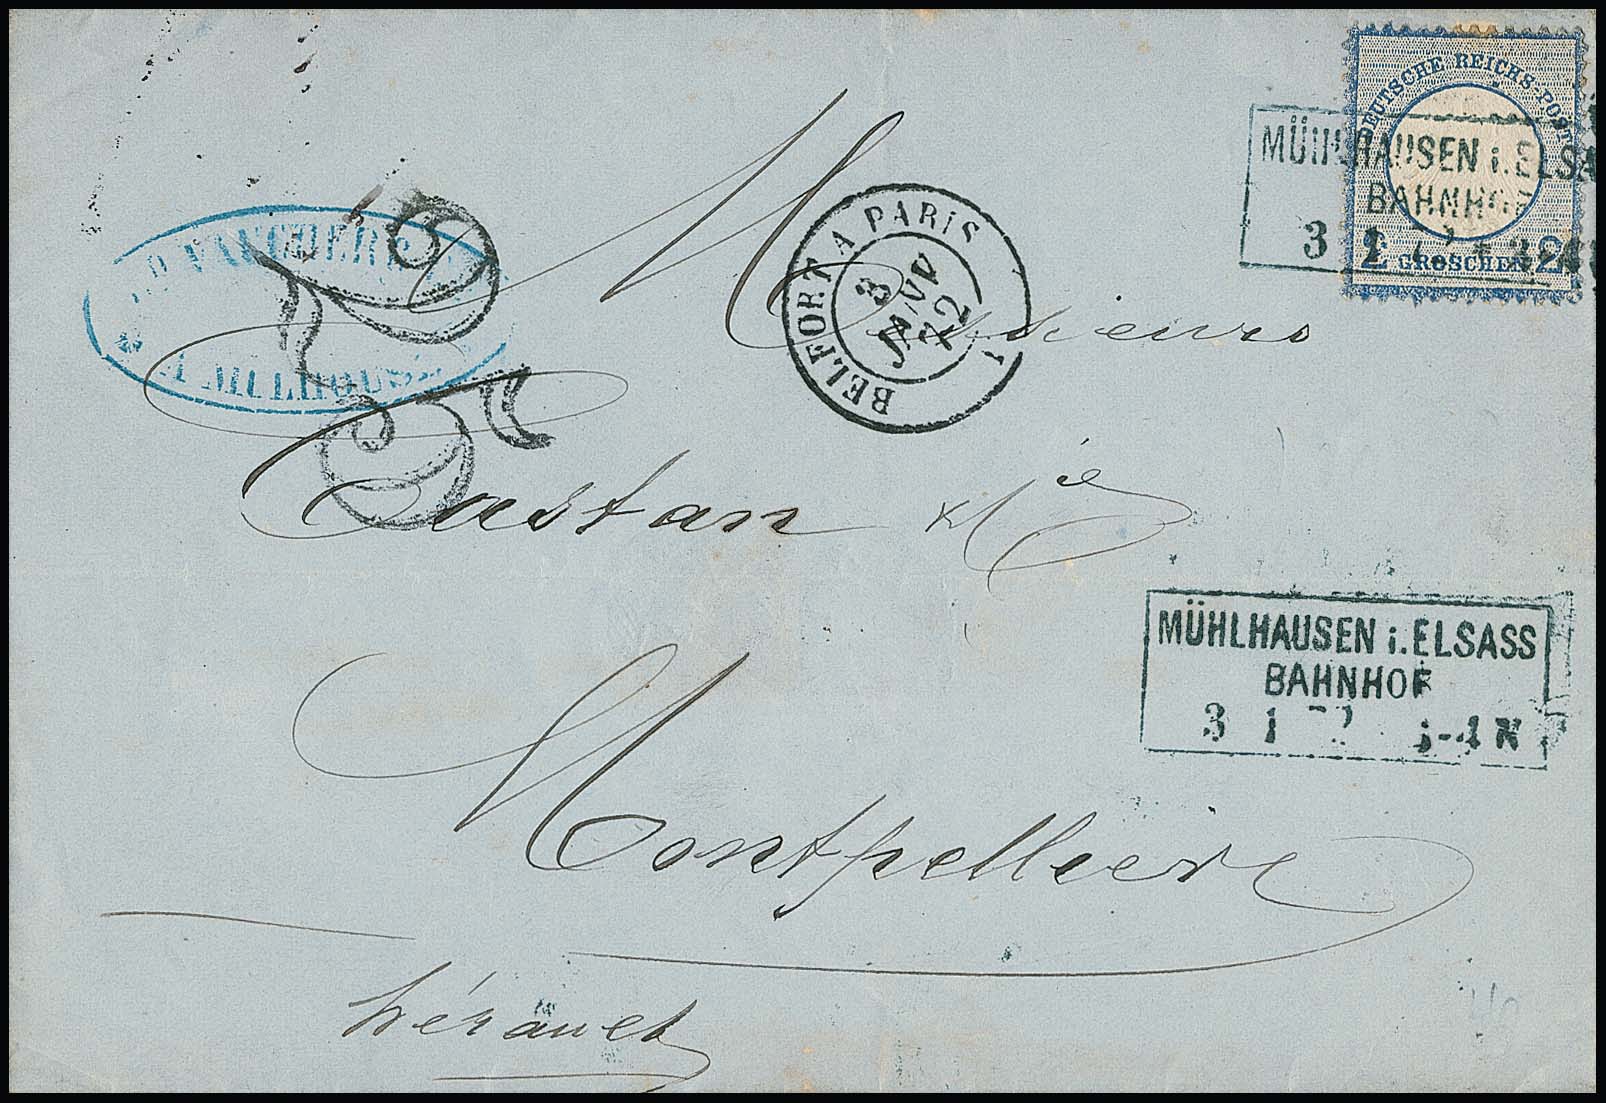 DEUTSCHE REICHS-POST
2 GROSCHEN 2
MÜHLHAUSEN i. ELSA
BAHNHOF
3 1 72
BELFORT A PARIS
3
JANV
72
1
A MULHOUSE
25
Messieurs
Castan & Cie
MÜHLHAUSEN i. ELSASS
BAHNHOF
3 1 72 -4 N
Montpellier
Hérault
40